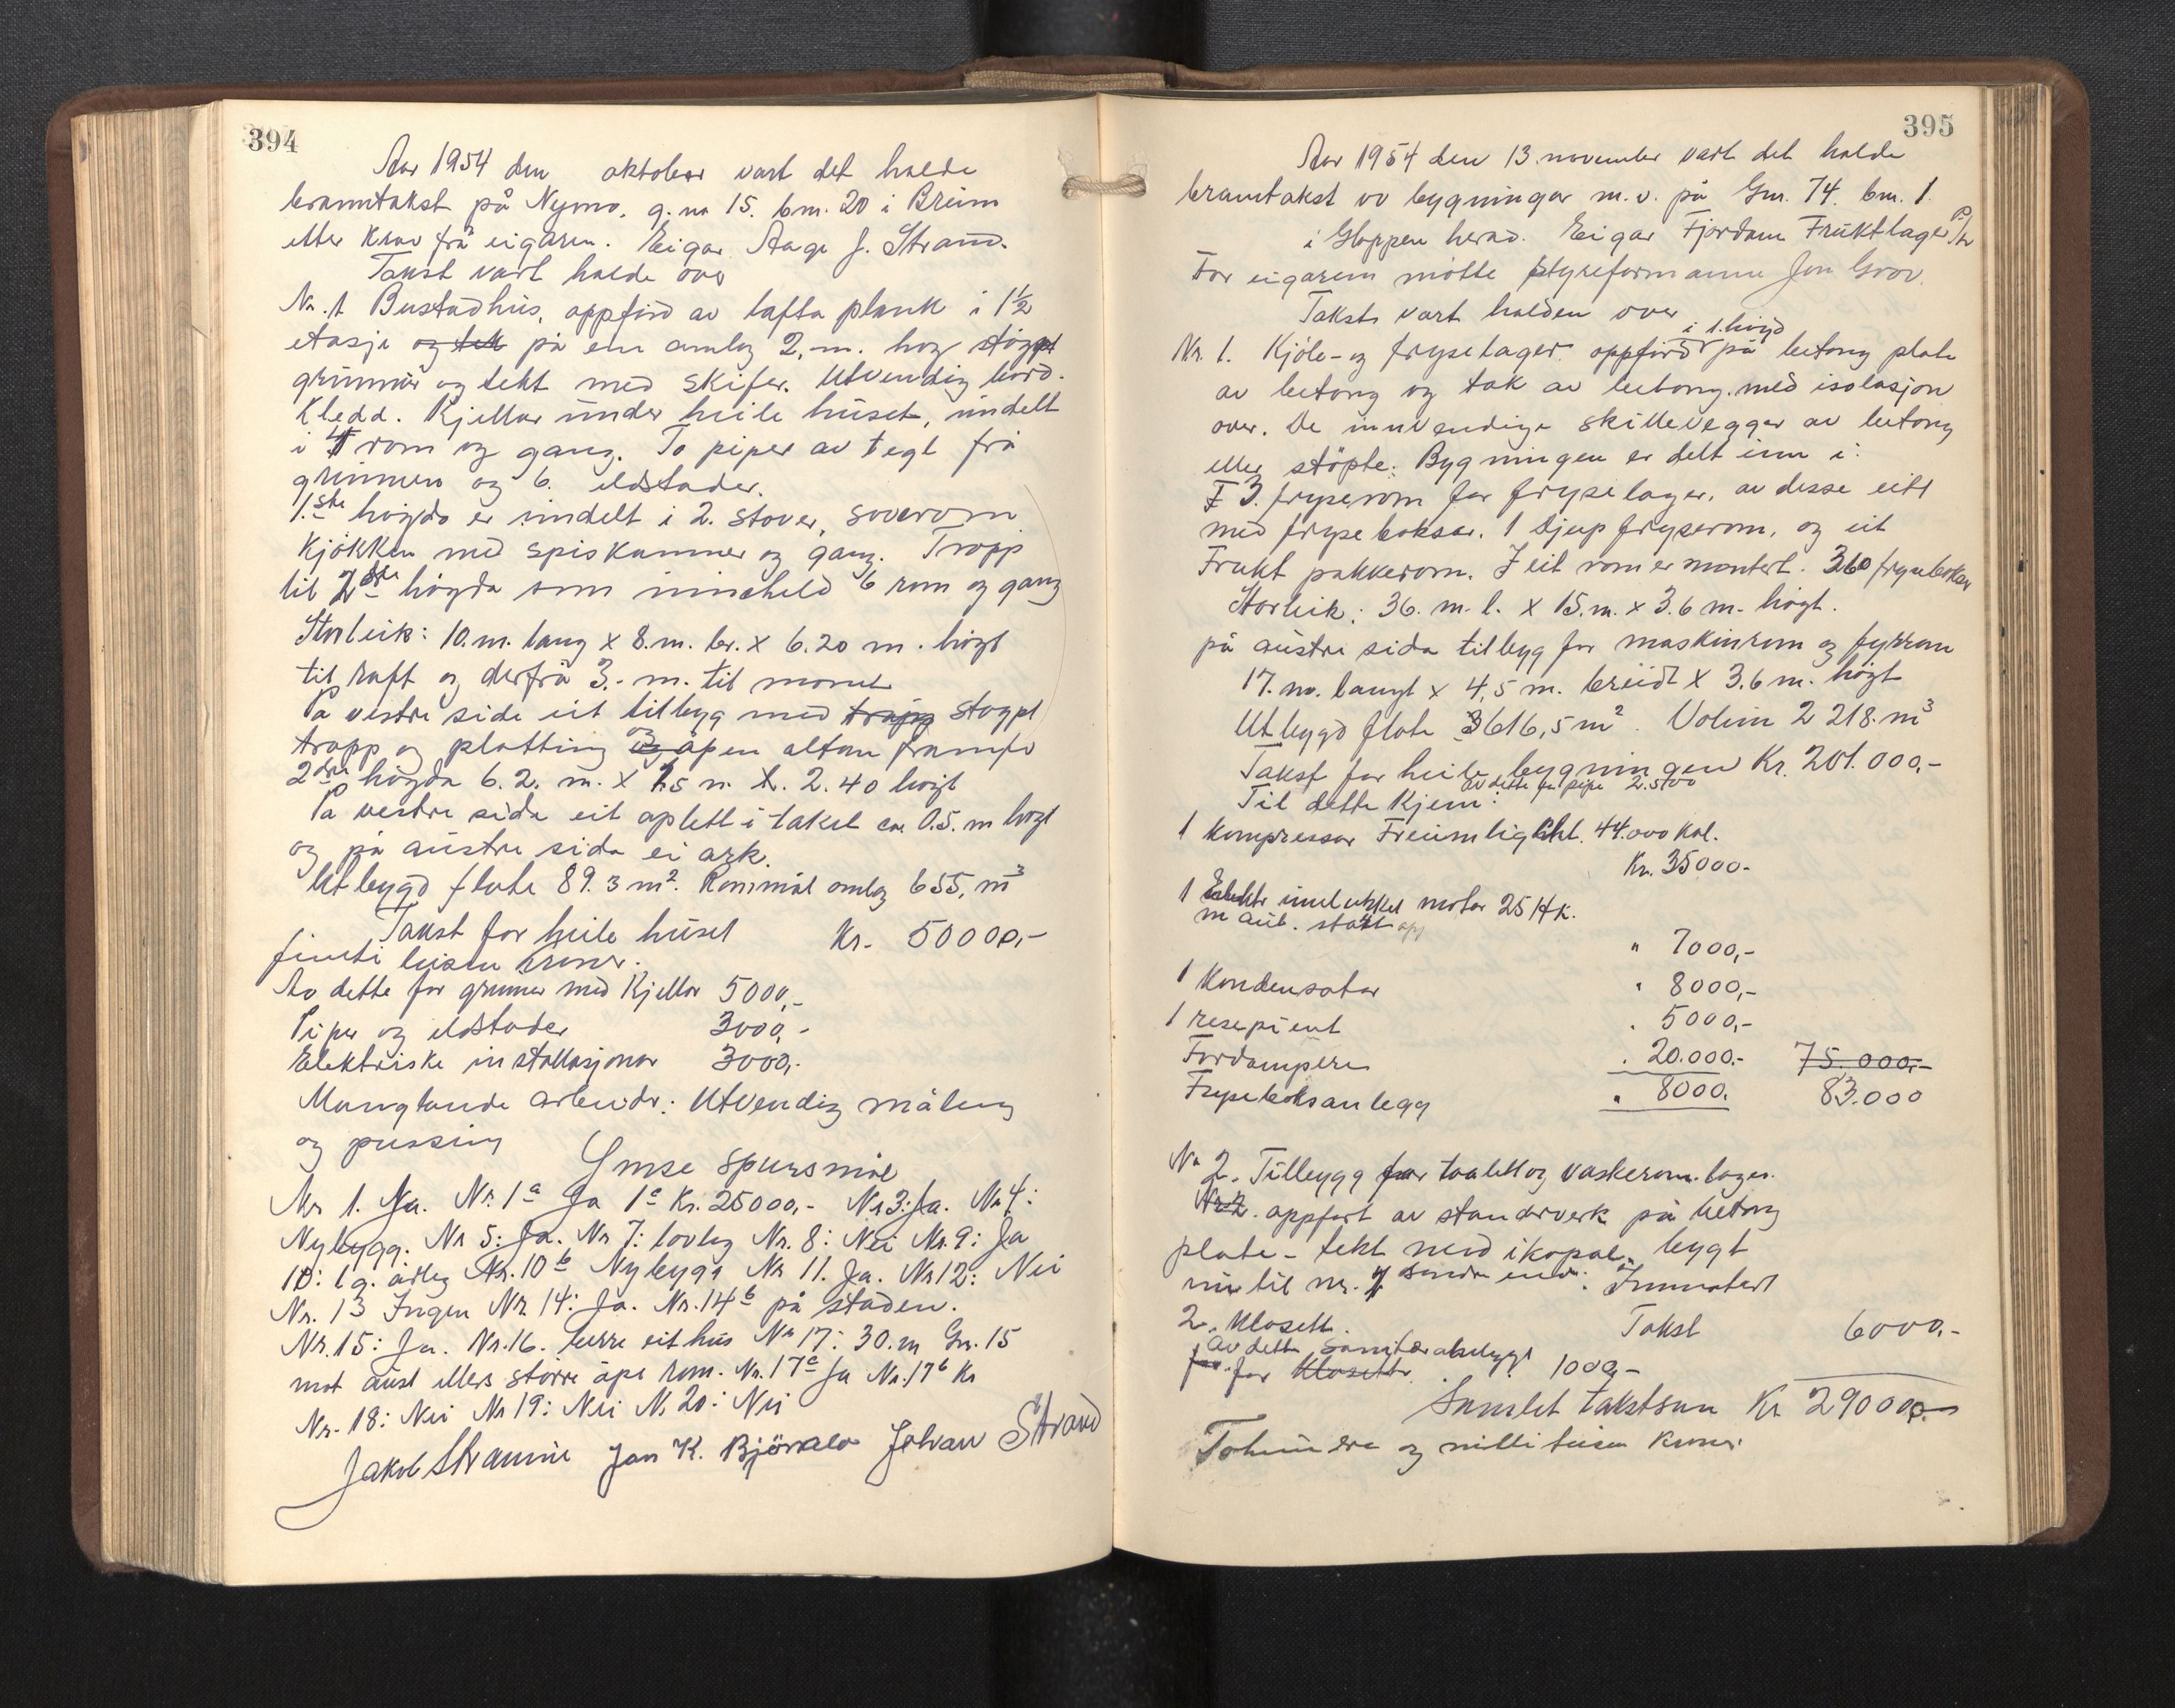 394
Aar 1954 den oktober vart det halde
branntakst på Nymo, g. nr 15. b.nr. 20 i Breim
etter krav frå eigaren. Eigar Aage J. Strand.
Takst vart halde over
Nr. 1 Bustadhus, oppförd av lafta plank i 1½
etasje og tek på ein omlag 2,-m. hog stöypt
grunnmur og tekt med skifer. Utvendig bord-
kledd. Kjellar under heile huset, inndelt
i 4 rom og gang. To piper av tegl frå
grunnen og 6. eldstader.
1.ste högda er inndelt i 2. stover, soverom
kjökken med spiskammer og gang. Tropp
til 2dre högda som inneheld 6 rom og gang
Storleik: 10.m. lang x 8.m. br. x 6.20 m. högt
til raft og derfrå 3.- m. til mönet
På vestre side eit tilbygg med trapp stöypt
tropp og platting og åpen altan framfor
2dre högda 6.2. m. x 1.5 m. x. 2.40 högt
På vestre sida eit oplett i taket ca 0.5. m högt
og på austre sida ei ark.
Utbygd flate 89.3 m². Rommål omlag 655, m³
Takst for heile huset Kr. 50000,-
femti tusen kroner.
Av dette for grunnmur med kjellar 5000,-
Piper og eldstader 3000,-
Elektriske installasjonar 3000,-
Manglande arbeider: Utvendig måling
og pussing
Ymse spursmål
Nr 1. Ja. Nr. 1a Ja 1c Kr. 25000,- Nr 3: Ja. Nr 4:
Nybygg. Nr 5: Ja. Nr 7: lovleg Nr. 8: Nei Nr. 9: Ja
10: 1 g. årleg Nr. 10b Nybygg Nr 11. Ja. Nr 12: Nei
Nr. 13 Ingen Nr 14: Ja. Nr. 14b på staden.
Nr. 15: Ja. Nr. 16. berre eit hus Nr 17: 30.m Gnr. 15
mot aust ellers större åpe rom. Nr. 17a Ja Nr. 17b Kr
Nr. 18: Nei Nr 19: Nei Nr 20: Nei
Jakob Straume Jon K. Björkelo Johan Strand
395
Aar 1954 den 13. november vart det halde
branntakst ov bygningar m.v. på Gnr. 74. bnr. 1.
i Gloppen herad. Eigar Fjordane Fruktlager P/L
For eigaren mötte styreformannen Jon Grov.
Takst vart halden over
i 1. högd
Nr. 1. Kjöle- og fryselager oppförd på betong plate
av betong og tak av betong med isolasjon
over. De innvendige skillevegger av betong
eller stöpte. Bygningen er delt inn i:
3. fryserom for fryselager, av desse eitt
med frysebokser. 1 djup fryserom, og eit
Frukt pakkerom. I eit rom er montert 360 frysebokser
Storleik: 36. m. l. x 15.m. x 3.6 m. högt.
på austre sida tilbygg for maskinrom og fyrrom
17. m. langt x 4,5 m. breidt x 3.6 m. högt
Utbygd flate 616,5 m². Volum 2 218. m³
Takst for heile bygningen Kr. 201.000,-
av dette for pipe 2.500
Til dette kjem:
1 kompressor 44.000 Kal.
Kr. 35000.-
1 Elektr. innelukket motor 25 HK.
m aut. start app
" 7000,-
1 Kondensator " 8000,-
1 resepient . 5000,-
Fordampere . 20.000.- 75.000,-
Fryseboksanlegg " 8000. 83.000
Nr 2. Tilbygg for toalett og vaskerom. lager.
Nr 2. oppfört av standrverk på betong
plate - tekt med ikopal. bygt
inn til nr. 1 söndre ende: Innmontert
2. klosett. Takst 6000,-
Av dette sanitæranlegg
for klosett 1000,-
Samlet takstsum Kr 290000.-
Tohundre og nitti tusen kroner